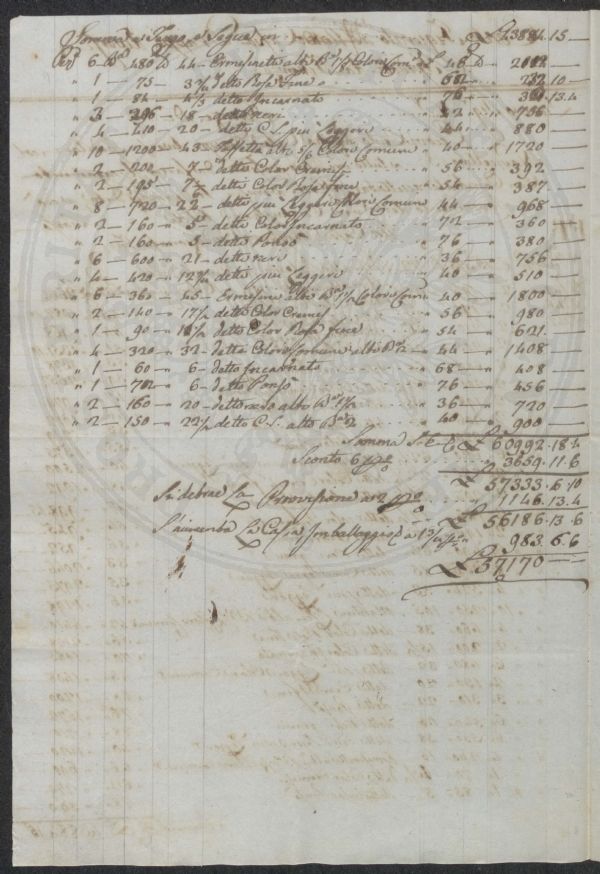 Somma a Tergo e Segue in £ 43884.15 —
Pe 6 Bra 480 D 44 — Ermesinetti alti B 1/2 Colori Com £ 48 D — 2112 —
" 1 — 75 — 3 3/4 detto Rosa Fine " 62 — 232.10
" 1 — 84 — 4 3/4 detto Incarnato " 76 — 361.13.4
" 3 — 296 — 18 — detto neri " 42 — 756 —
" 4 — 410 — 20 — detto C.S. piu Leggeri " 44 — 880 —
" 10 — 1200 — 43 — alti Colori Comuni " 40 — 1720 —
" 2 — 200 — 7 — detti Color Cremisi " 56 — 392 —
" 2 — 195 — 7 — detti Color Rosa fine " 54 — 387 —
" 8 — 720 — 22 — detti piu Leggeri Colori Comuni " 44 — 968 —
" 2 — 160 — 5 — detto Color Incarnato " 72 — 360 —
" 2 — 160 — 5 — detto Ponsò " 76 — 380 —
" 6 — 600 — 21 — detto neri " 36 — 756 —
" 4 — 420 — 12 3/4 detti piu Leggeri " 40 — 510 —
" 6 — 360 — 45 — Ermesini alti B 1/2 Colori Com " 40 — 1800 —
" 2 — 140 — 17 1/2 detto Color Cremisi " 56 — 980 —
" 1 — 90 — 11 1/2 detto Color Rosa fine " 54 — 621 —
" 4 — 320 — 32 — detti Colori Comuni alti B 2 — 44 — 1408 —
" 1 — 60 — 6 — detto Incarnato " 68 — 408 —
" 1 — 70 — 6 — detto Ponsò " 76 — 456 —
" 2 — 160 — 20 — detto nero alto B 1 1/2 " 36 — 720 —
" 2 — 150 — 22 1/2 detto C.S. alto B 2 " 40 — 900 —
Somma S. E. O. £ 60992.18.4
Sconto 6 p%o 3659.11.6
£ 57333.6.10
Si detrae La Provisione a 2 p%o 1146.13.4
£ 56186.13.6
S'aumenta La Cassa Imballaggio a 983.6.6
£ 57170 —